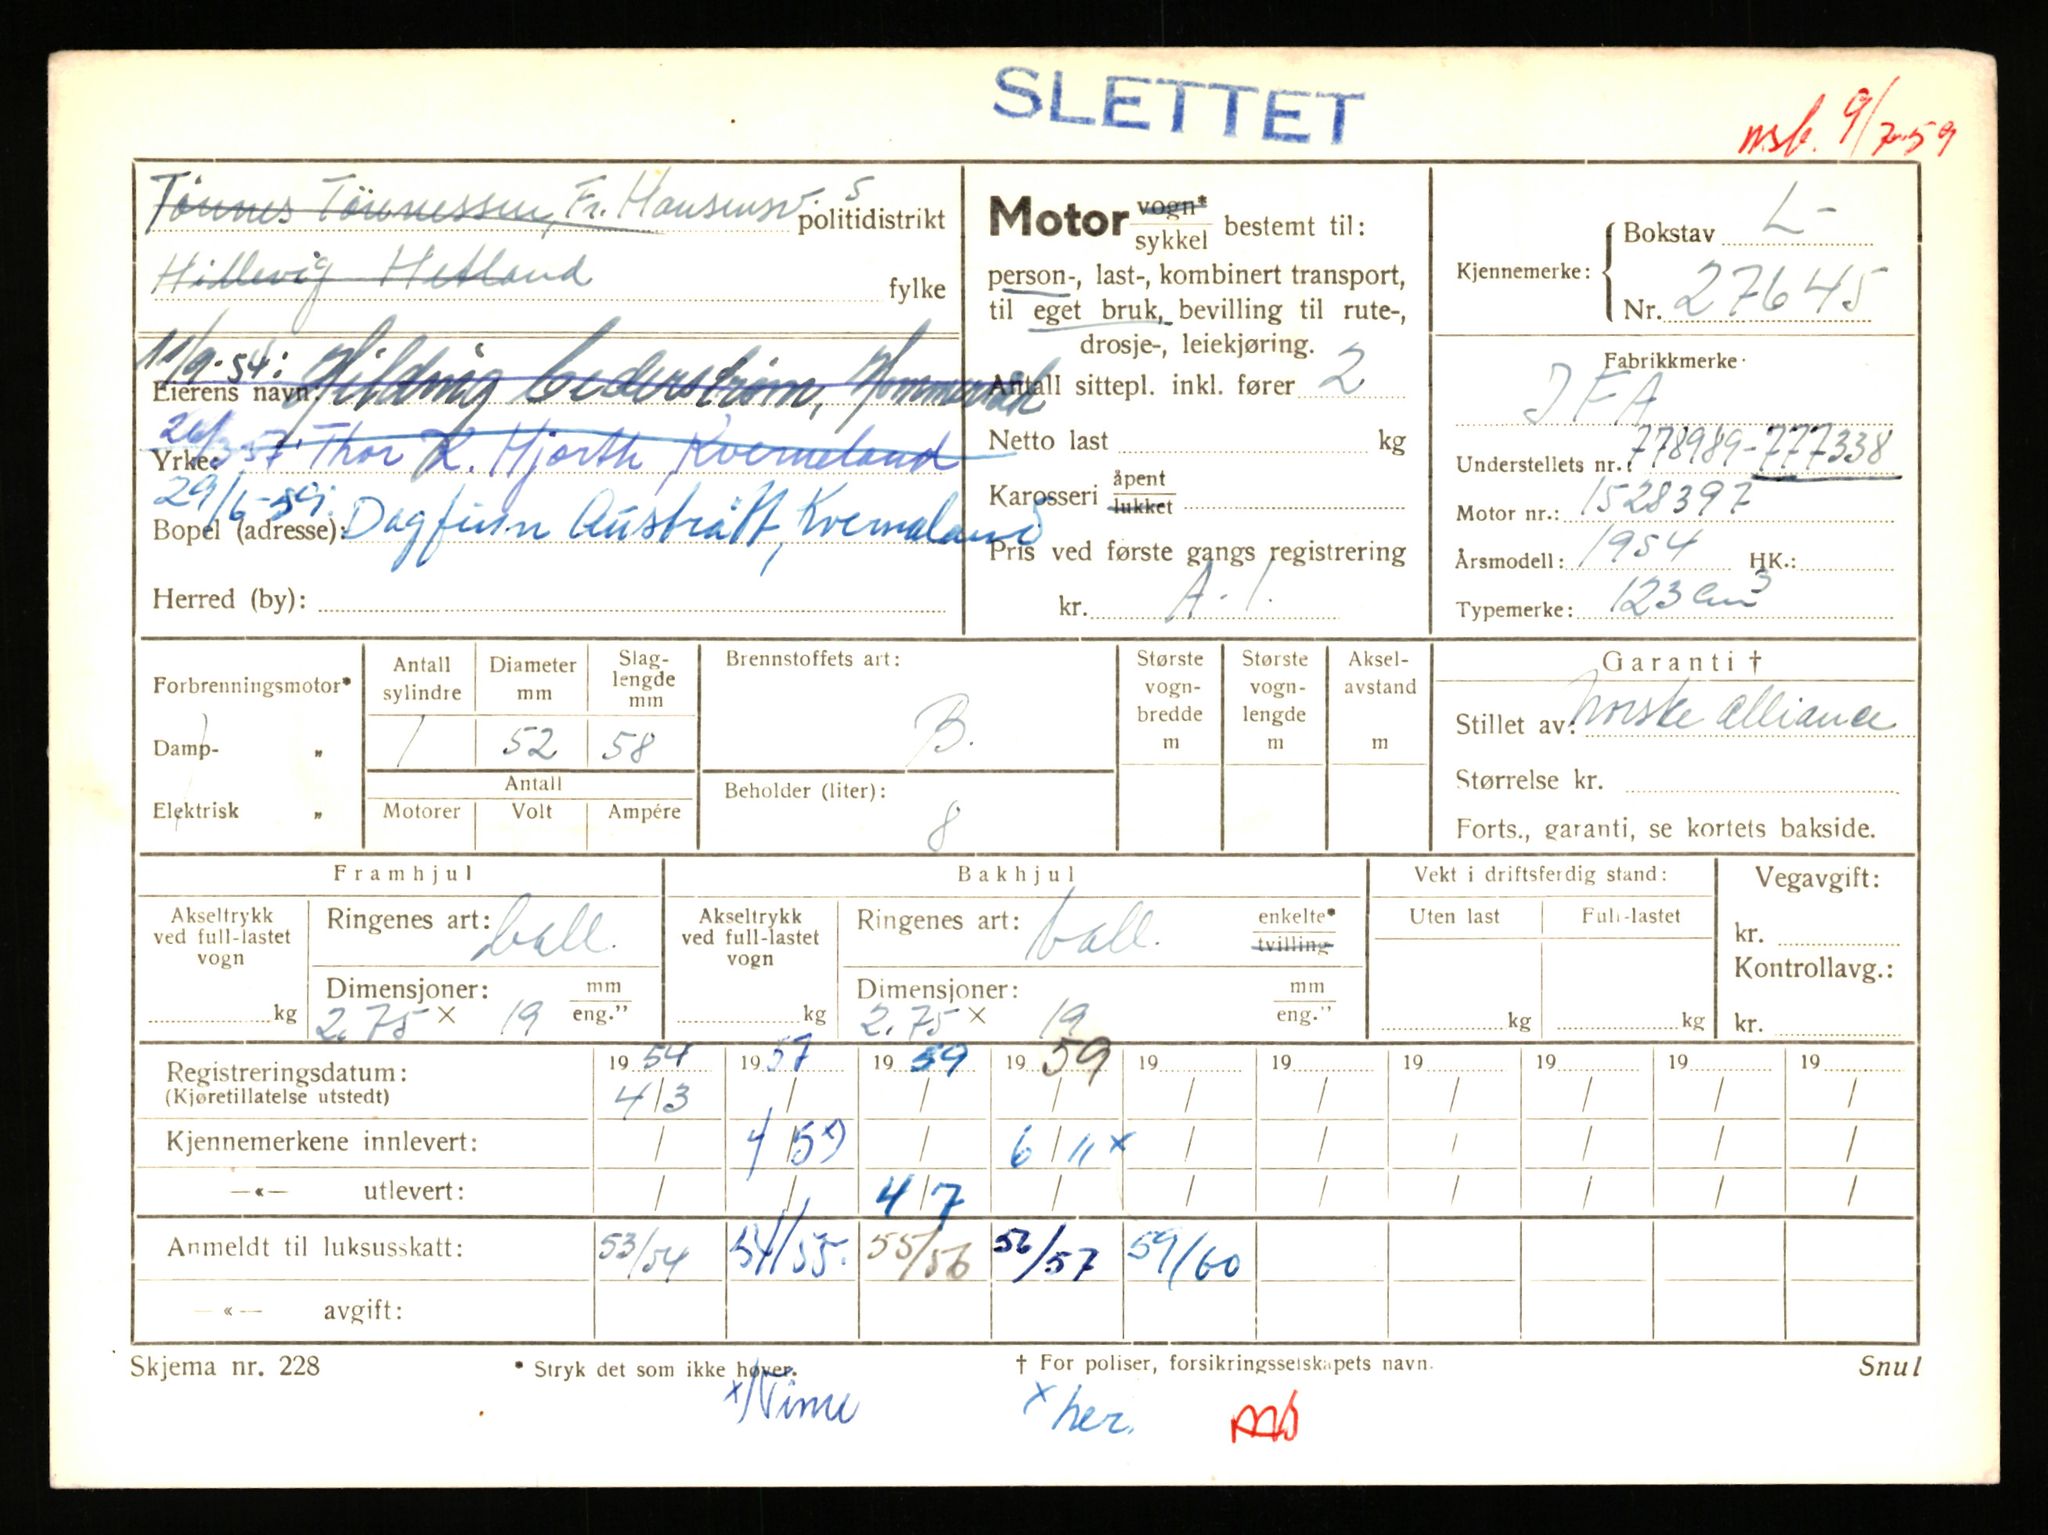 SLETTET
msb. 9/7-59
Tönnes Tönnessen, Fr. Hansensv. 5 politidistrikt
Hillevig Hetland fylke
11/9-54: Hilding Cederstrøm, Hommersåk
Eierens navn:
26/3-57 Thor K. Hjorth, Kverneland
Yrke:
29/6-59: Dagfinn Austrått, Kvernaland
Bopel (adresse):
Herred (by):
Motor vogn* / sykkel bestemt til:
person-, last-, kombinert transport,
til eget bruk, bevilling til rute-,
drosje-, leiekjøring.
Antall sittepl. inkl. fører 2
Netto last kg
Karosseri åpent / lukket
Pris ved første gangs registrering
kr. A. 1.
Kjennemerke: Bokstav L-
Nr. 27645
Fabrikkmerke
IFA
Understellets nr.: 778989-777338
Motor nr.: 1528397
Årsmodell: 1954 HK.:
Typemerke: 123 cm3
Forbrenningsmotor*
Damp- „
Elektrisk „
Antall sylindre Diameter mm Slag-lengde mm
1 52 58
Antall
Motorer Volt Ampére
Brennstoffets art:
B.
Beholder (liter):
8
Største vogn-bredde m
Største vogn-lengde m
Aksel-avstand m
Garanti †
Stillet av: Norske Alliance
Størrelse kr.
Forts., garanti, se kortets bakside.
Framhjul
Akseltrykk ved full-lastet vogn kg
Ringenes art: ball.
Dimensjoner: mm / eng."
2.75 x 19
Bakhjul
Akseltrykk ved full-lastet vogn kg
Ringenes art: ball. enkelte* / tvilling
Dimensjoner: mm / eng."
2.75 x 19
Vekt i driftsferdig stand:
Uten last Full-lastet
kg kg
Vegavgift:
kr.
Kontrollavg.:
kr.
Registreringsdatum: 19 54 19 57 19 59 19 59 19 19 19 19 19 19
(Kjøretillatelse utstedt) 4/3 / / / / / / / / /
Kjennemerkene innlevert: / 4/59 x) / 6/11 x / / / / / /
—«— utlevert: / / 4/7 / / / / / / /
Anmeldt til luksusskatt: 53/54 54/55. 55/56 56/57 59/60
—«— avgift:
Skjema nr. 228 * Stryk det som ikke høver. † For poliser, forsikringsselskapets navn. Snul
x) Time x her.